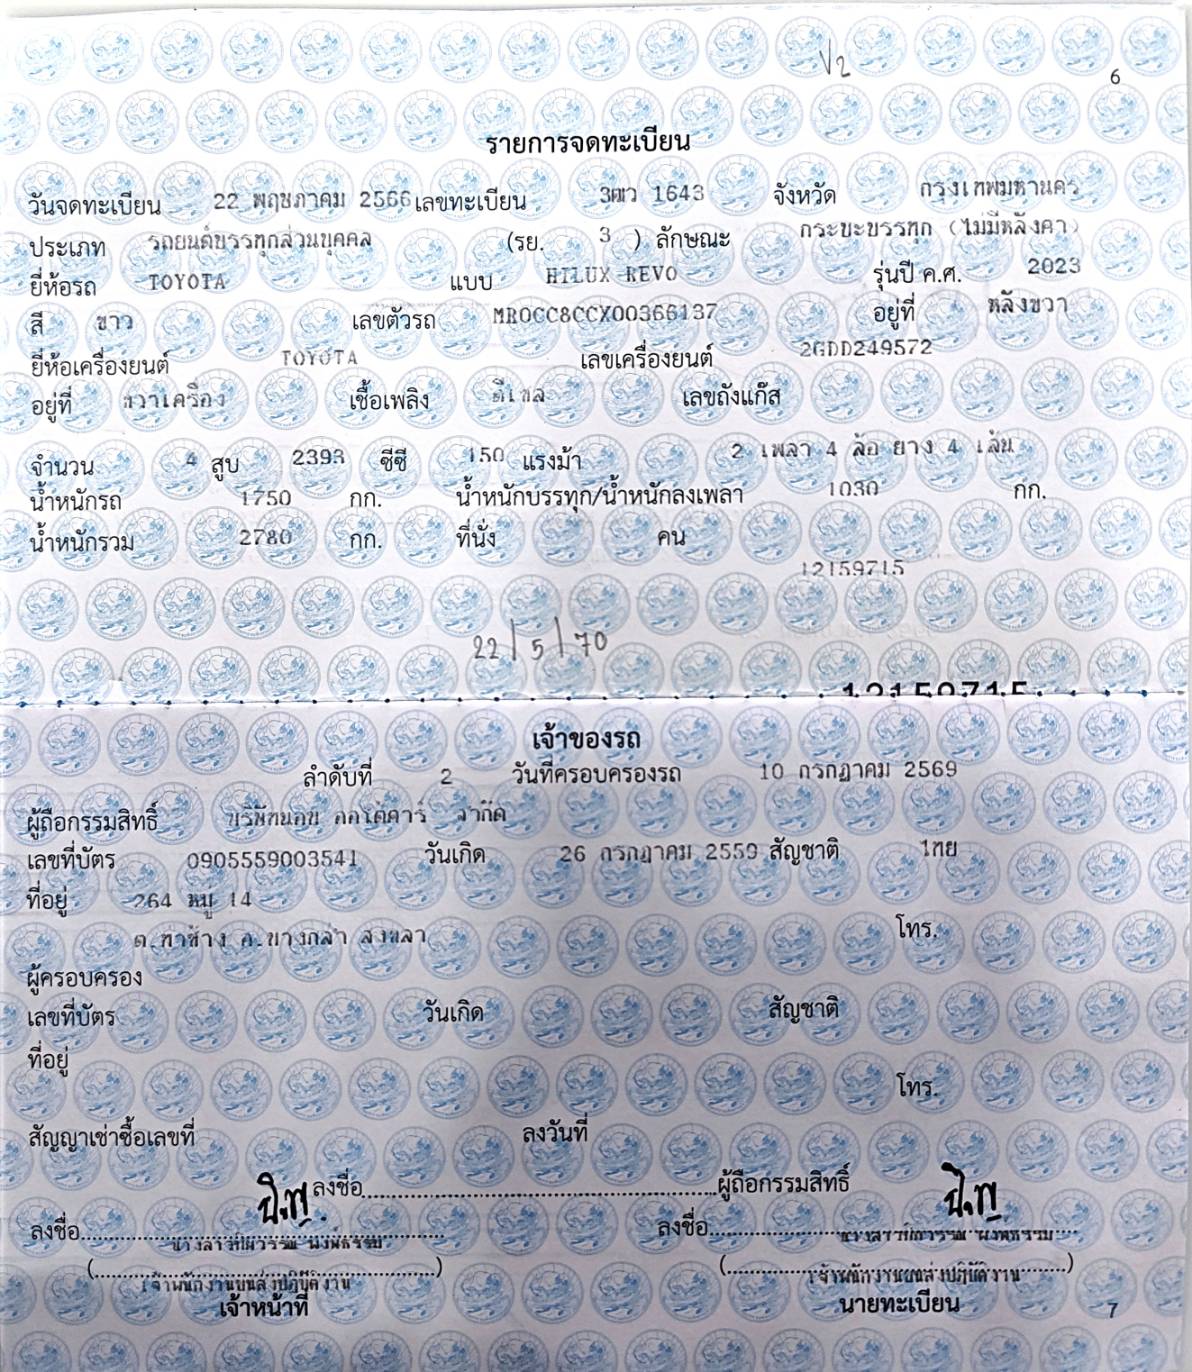 V2
6
รายการจดทะเบียน
วันจดทะเบียน 22 พฤษภาคม 2566 เลขทะเบียน 3ฒว 1643 จังหวัด กรุงเทพมหานคร
ประเภท รถยนต์บรรทุกส่วนบุคคล (รย. 3 ) ลักษณะ กระบะบรรทุก (ไม่มีหลังคา)
ยี่ห้อรถ TOYOTA แบบ HILUX REVO รุ่นปี ค.ศ. 2023
สี ขาว เลขตัวรถ MR0CC8CCX00366137 อยู่ที่ หลังขวา
ยี่ห้อเครื่องยนต์ TOYOTA เลขเครื่องยนต์ 2GDD249572
อยู่ที่ ขวาเครื่อง เชื้อเพลิง ดีเซล เลขถังแก๊ส
จำนวน 4 สูบ 2393 ซีซี 150 แรงม้า 2 เพลา 4 ล้อ ยาง 4 เส้น
น้ำหนักรถ 1750 กก. น้ำหนักบรรทุก/น้ำหนักลงเพลา 1030 กก.
น้ำหนักรวม 2780 กก. ที่นั่ง คน
12159715
22/5/70
12159715
เจ้าของรถ
ลำดับที่ 2 วันที่ครอบครองรถ 10 กรกฎาคม 2569
ผู้ถือกรรมสิทธิ์ บริษัท ออโต้คาร์ จำกัด
เลขที่บัตร 0905559003541 วันเกิด 26 กรกฎาคม 2559 สัญชาติ ไทย
ที่อยู่ 264 หมู่ 14
ต.ท่าช้าง อ.บางกล่ำ สงขลา โทร.
ผู้ครอบครอง
เลขที่บัตร วันเกิด สัญชาติ
ที่อยู่
โทร.
สัญญาเช่าซื้อเลขที่ ลงวันที่
ลงชื่อ ผู้ถือกรรมสิทธิ์
ลงชื่อ ลงชื่อ
เจ้าพนักงานขนส่งปฏิบัติงาน เจ้าพนักงานขนส่งปฏิบัติงาน
เจ้าหน้าที่ นายทะเบียน
7